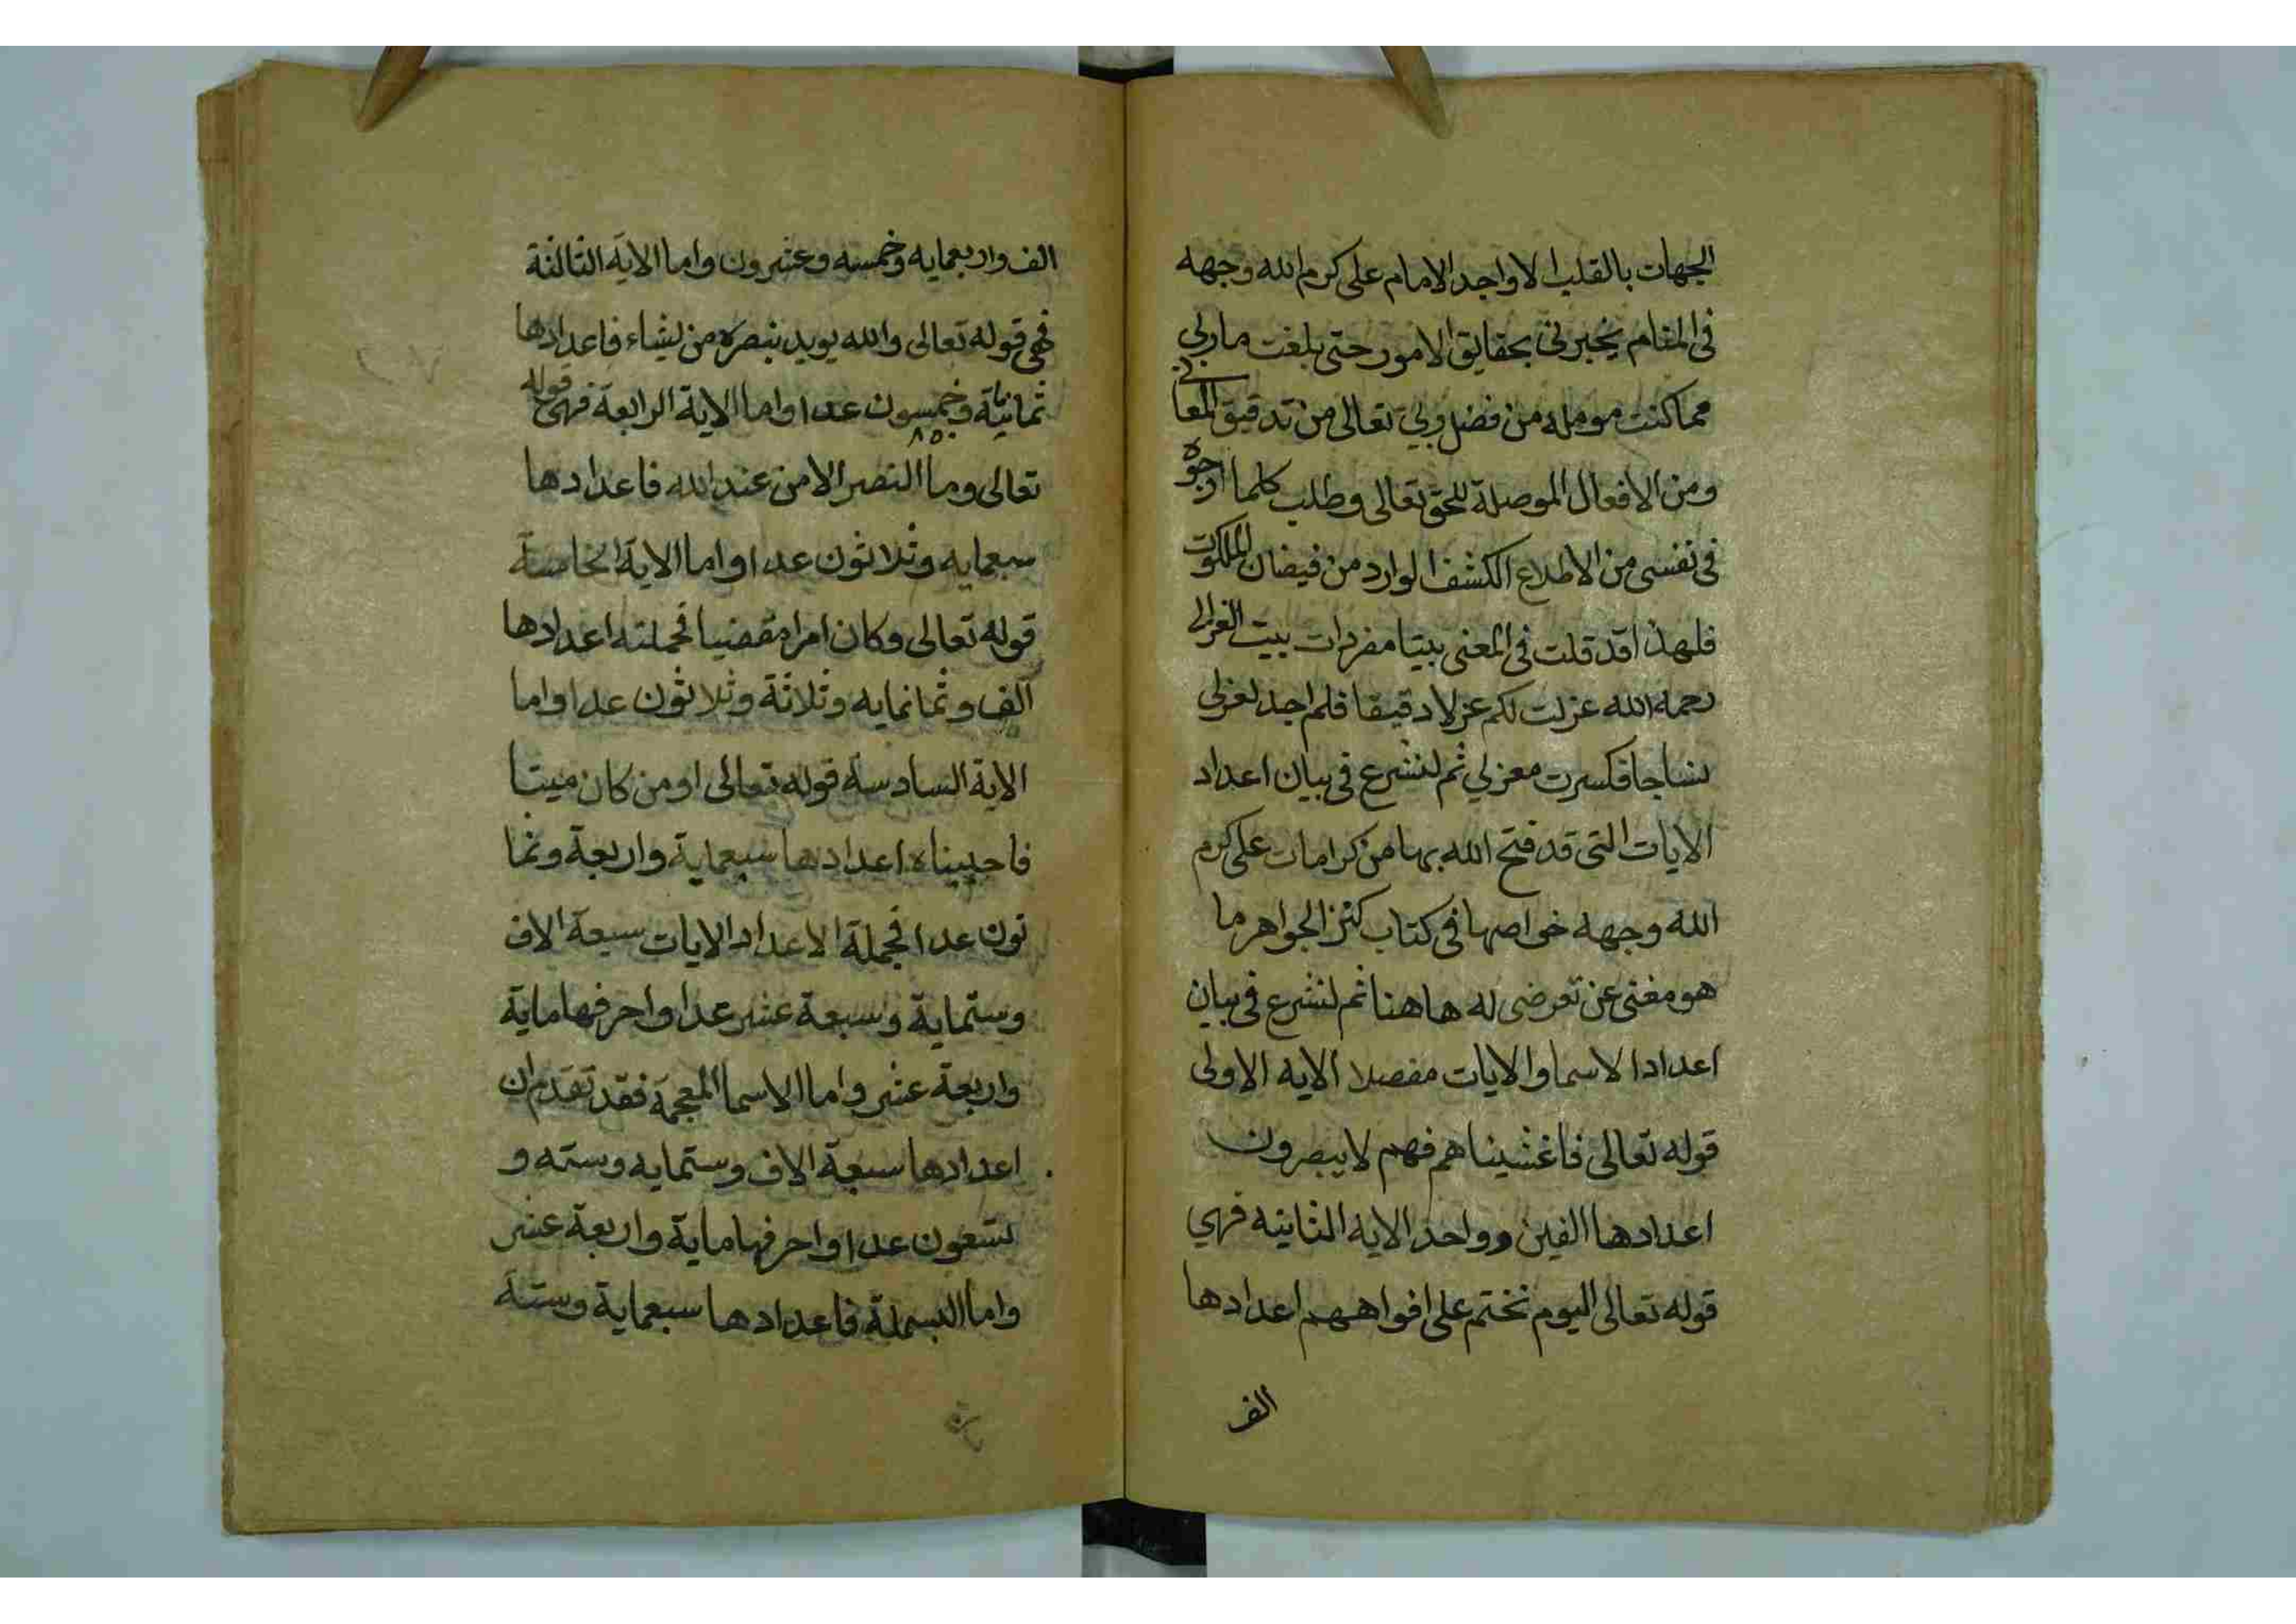 الجهات بالقلب الا واجد الامام على كرم الله وجهه
فى المنام يخبرنى بحقايق الامور حتى بلغت ماربي
مما كنت مومله من فضل ربي تعالى من تدقيق المعانى
ومن الافعال الموصلة للحق تعالى وطلب كلما ارجوه
فى نفسى من الاطلاع الكشف الوارد من فيضان الملكوت
فلهذا قد قلت فى المعنى بيتا مفردات بيت الغزالى
رحمه الله غزلت لكم غزلا دقيقا فلم اجد لغزلي
نساجا فكسرت مغزلي ثم لنشرع فى بيان اعداد
الايات التى قد فتح الله بها من كرامات على كرم
الله وجهه خواصها فى كتاب كنز الجواهر ما
هو مغنى عن تعرضى له هاهنا ثم لنشرع فى بيان
اعداد الاسما والايات مفصلا الايه الاولى
قوله تعالى فاغشيناهم فهم لا يبصرون
اعدادها الفين وواحد الايه الثانيه فهي
قوله تعالى اليوم نختم على افواههم اعدادها
الف
الف واربعمايه وخمسه وعشرون واما الاية الثالثة
فهى قوله تعالى والله يويد بنصره من يشاء فاعدادها
ثمانية وخمسون عدا واما الاية الرابعة فهى قوله
٨٥٠
تعالى وما النصر الا من عند الله فاعدادها
سبعمايه وثلاثون عدا واما الاية الخامسة
قوله تعالى وكان امرا مقضيا فجملته اعدادها
الف وثمانمايه وثلاثة وثلاثون عدا واما
الاية السادسة قوله تعالى اومن كان ميتا
فاحييناه اعدادها سبعماية واربعة وثما
نون عدا فجملة الاعداد الايات سبعة الاف
وستماية وسبعة عشر عدا واحرفها ماية
واربعة عشر واما الاسما المعجمة فقد تقدم ان
اعدادها سبعة الاف وستمايه وسته و
تسعون عدا واحرفها ماية واربعة عشر
واما البسملة فاعدادها سبعماية وستة